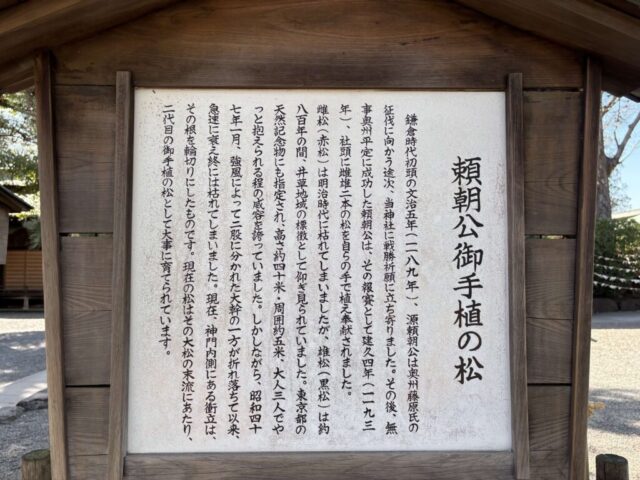 頼朝公御手植の松
鎌倉時代初頭の文治五年(一一八九年)、源頼朝公は奥州藤原氏の
征伐に向かう途次、当神社に戦勝祈願に立ち寄りました。その後、無
事奥州平定に成功した頼朝公は、その報賽として建久四年(一一九三
年)、社頭に雌雄二本の松を自らの手で植え奉献されました。
雌松(赤松)は明治時代に枯れてしまいましたが、雄松(黒松)は約
八百年の間、井草地域の標徴として仰ぎ見られていました。東京都の
天然記念物にも指定され、高さ約四十米・周囲約五米・大人三人でや
っと抱えられる程の威容を誇っていました。しかしながら、昭和四十
七年一月、強風によって二股に分かれた大幹の一方が折れ落ちて以来、
急速に衰え終には枯れてしまいました。現在、神門内側にある衝立は、
その根を輪切りにしたものです。現在の松はその大松の末流にあたり、
二代目の御手植の松として大事に育てられています。